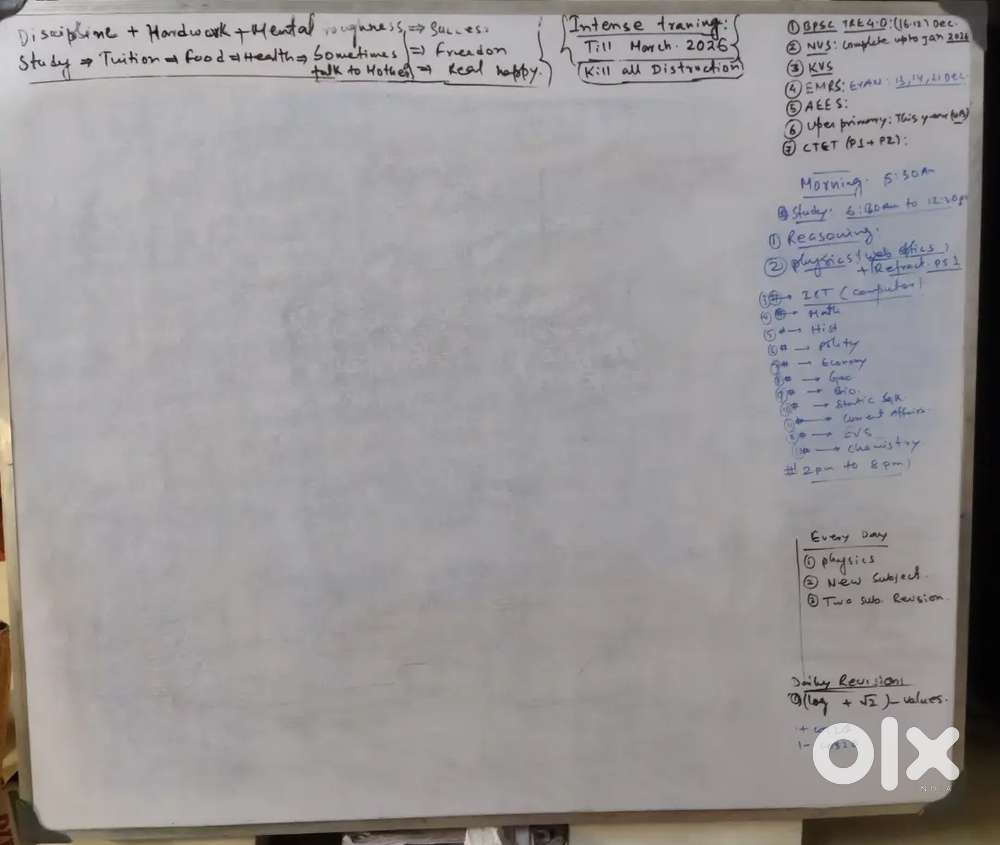 Discipline + Hardwork + Mental toughness ⇒ Success.
Study ⇒ Tuition ⇒ Food ⇒ Health ⇒ Sometimes talk to Mother ⇒ Freedom
⇒ Real happy.
Intense traning:
Till March. 2026
Kill all Distraction
① BPSC TRE 4.0: (16.12) Dec.
② NVS: Complete upto Jan 2026
③ KVS
④ EMRS: EXAM: 13, 14, 21 Dec.
⑤ AEES:
⑥ Uper primary: This year
⑦ CTET (P1 + P2):
Morning. 5:30 Am
Study. 6:30am to 12:30pm
① Reasoning.
② physics (web optics)
+ Refract. PS1
③ # → ICT (Computer)
④ # → Math
⑤ * → Hist
⑥ * → Polity
* → Economy
* → Geo
* → Bio.
* → Static
→ Current Affairs.
* → EVS
* → Chemistry
# 2pm to 8pm)
Every Day
① Physics
② New Subject.
③ Two Sub. Revision.
Daily Revisions
① (log + √2) - values.
1 + cos2
1 - cos2
olx
INDIA